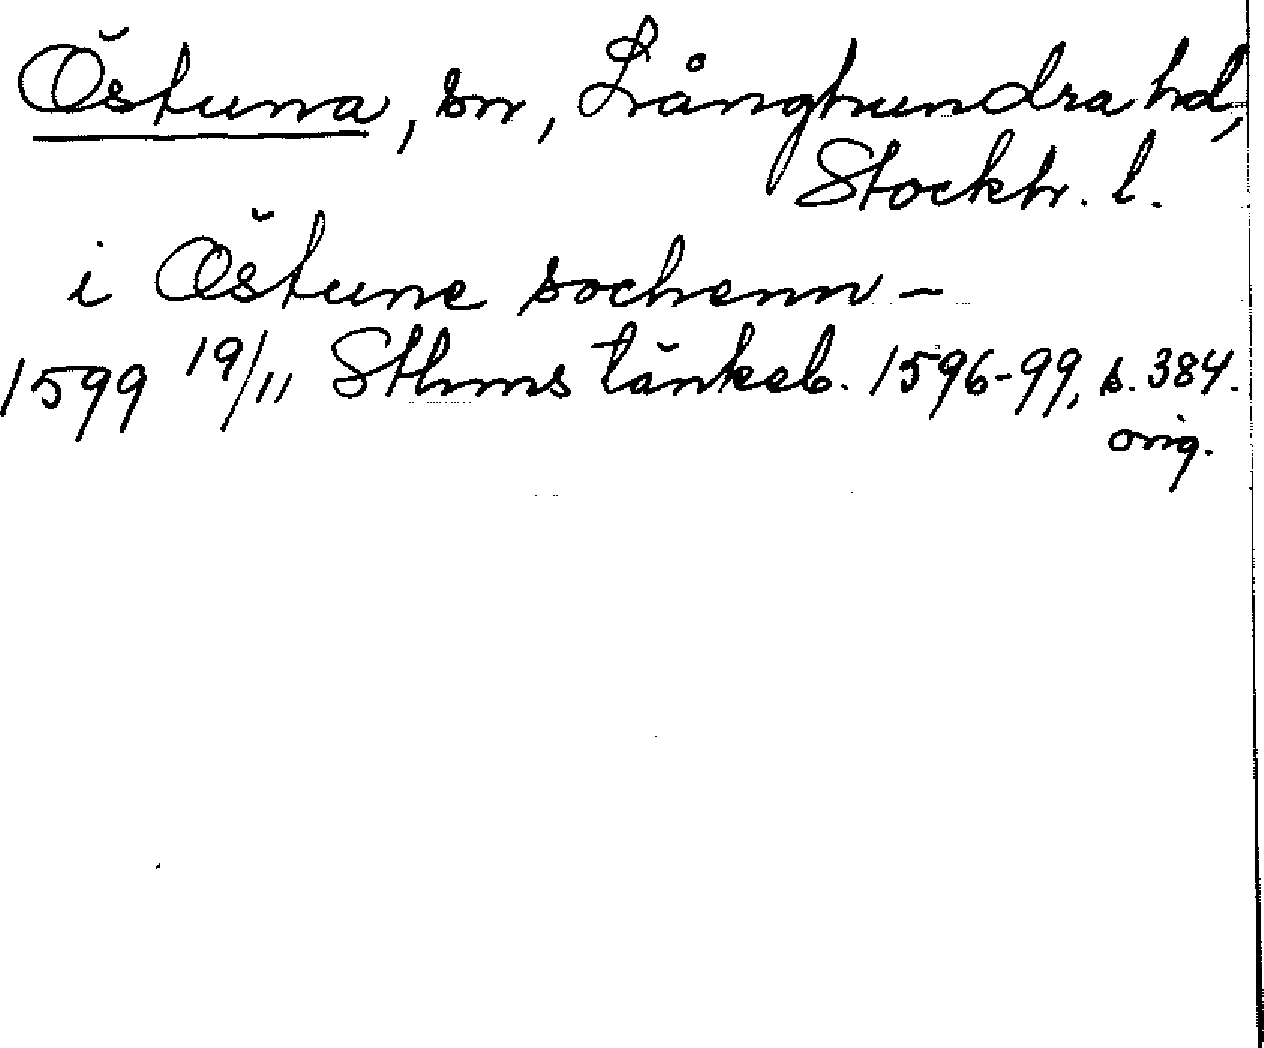 Östuna, sn, Långhundra hd,
Stockh. l.
i Östune sochenn –
1599 19/11 Sthms tänkeb. 1596-99, s. 384.
orig.